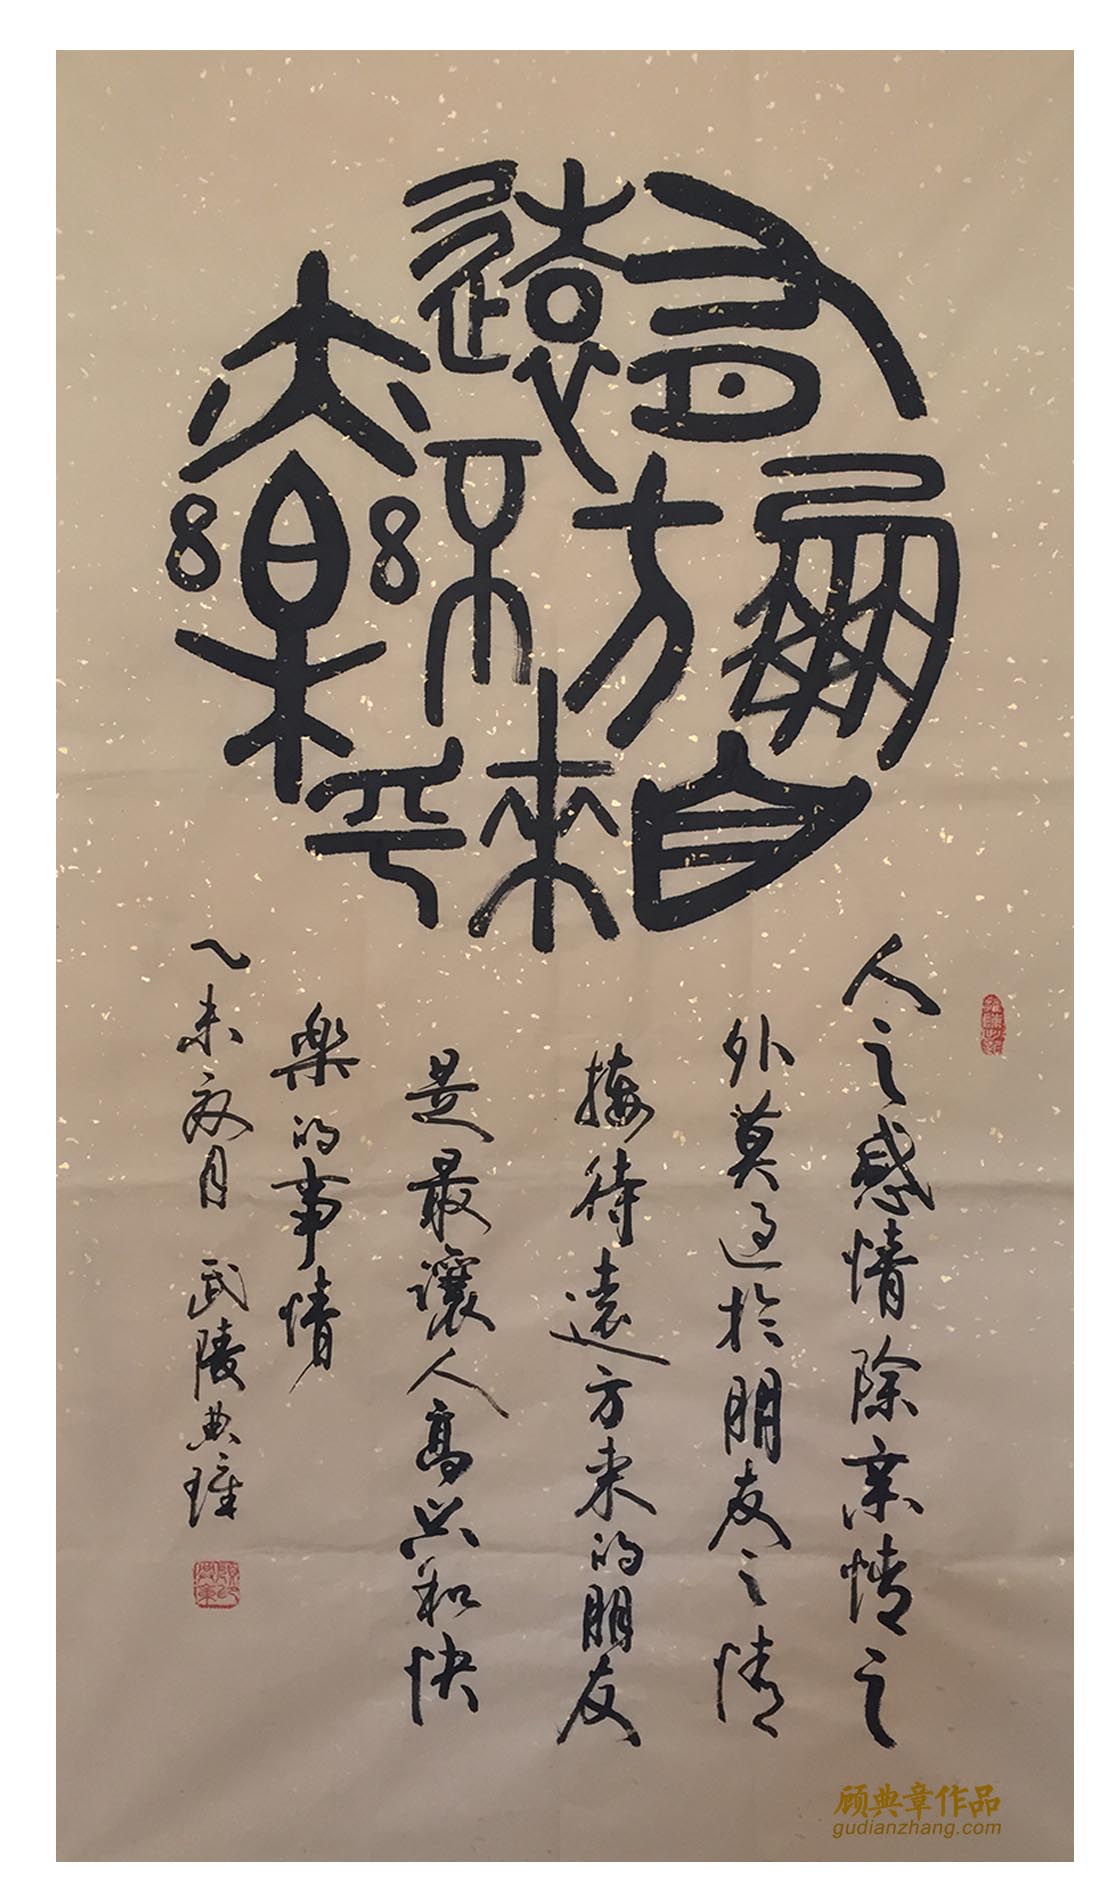 有朋自
遠方來
不亦樂乎
人之感情除亲情之
外莫过於朋友之情
接待遠方来的朋友
是最讓人高兴和快
樂的事情
乙未夏月 武陵典璋
顾典章作品
gudianzhang.com